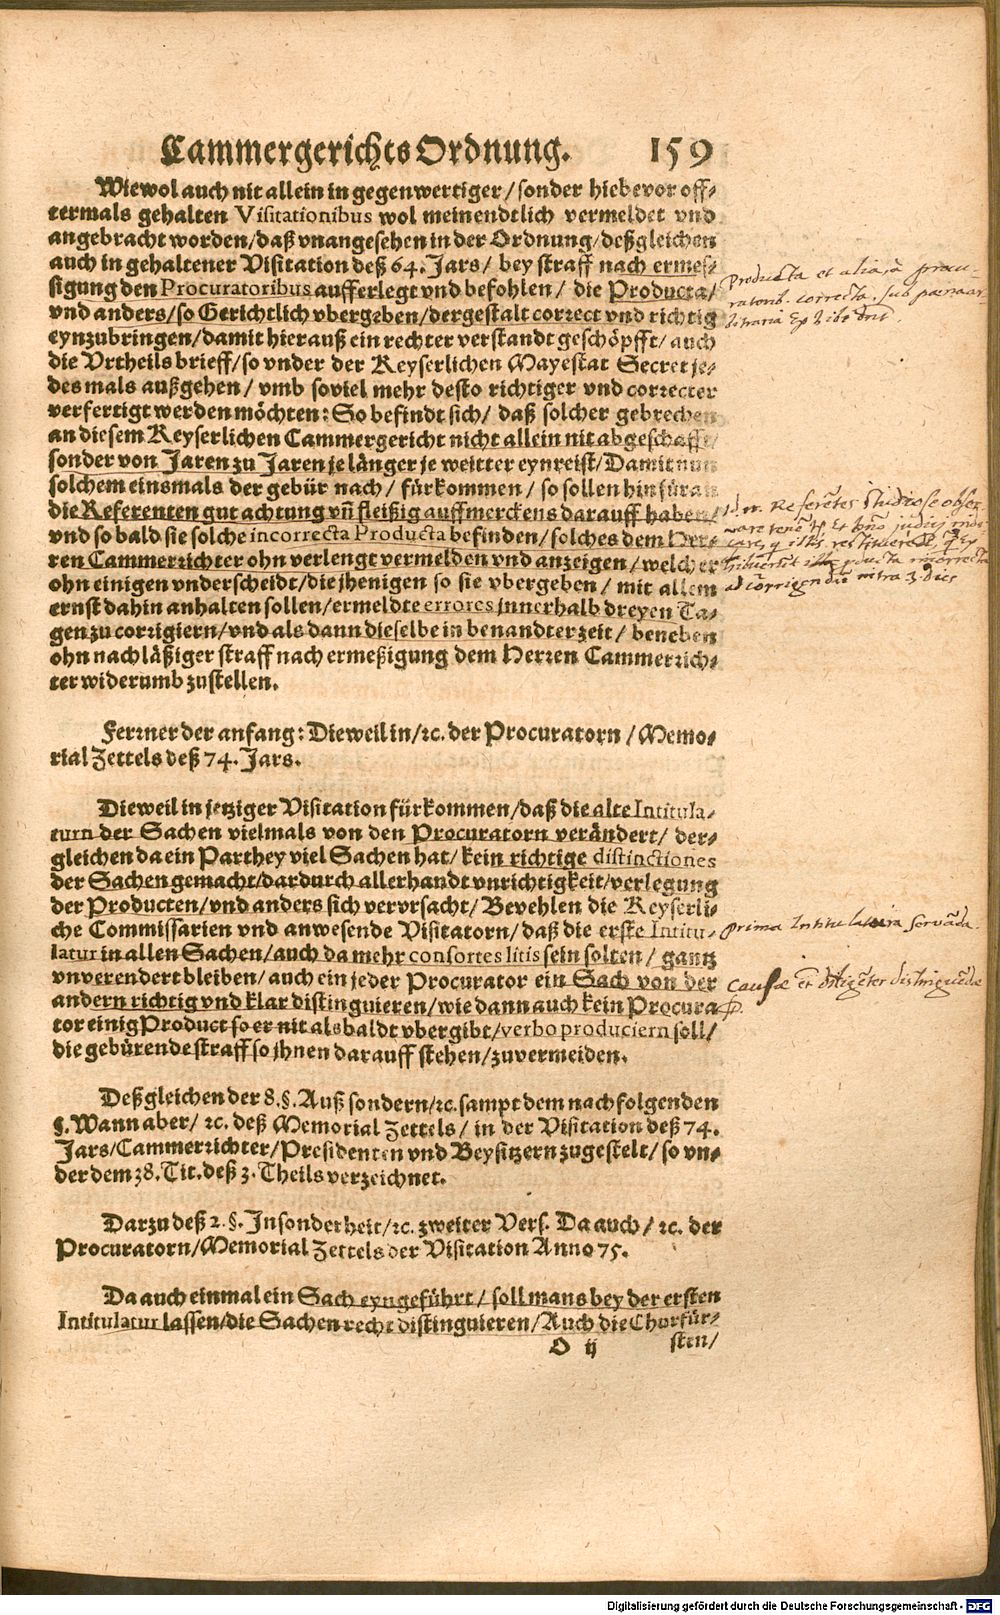 Cammergerichts Ordnung. 159
Wiewol auch nit allein in gegenwertiger / sonder hiebevor off-
termals gehalten Visitationibus wol meinendtlich vermeldet vnd
angebracht worden / daß vnangesehen in der Ordnung / deßgleichen
auch in gehaltener Visitation deß 64. Jars / bey straff nach ermes-
sigung den Procuratoribus aufferlegt vnd befohlen / die Producta /
vnd anders / so Gerichtlich vbergeben / dergestalt correct vnd richtig
eynzubringen / damit hierauß ein rechter verstandt geschöpfft / auch
die Vrtheils brieff / so vnder der Keyserlichen Mayestat Secret je-
des mals außgehen / vmb soviel mehr desto richtiger vnd correcter
verfertigt werden möchten: So befindt sich / daß solcher gebrechen
an diesem Keyserlichen Cammergericht nicht allein nit abgeschafft /
sonder von Jaren zu Jaren je länger je weitter eynreist / Damit nun
solchem einsmals der gebür nach / fürkommen / so sollen hinfüran
die Referenten gut achtung vñ fleißig auffmerckens darauff haben /
vnd so bald sie solche incorrecta Producta befinden / solches dem Her-
ren Cammerrichter ohn verlengt vermelden vnd anzeigen / welcher
ohn einigen vnderscheidt / die jhenigen so sie vbergeben / mit allem
ernst dahin anhalten sollen / ermeldte errores innerhalb dreyen Ta-
gen zu corrigiern / vnd als dann dieselbe in benandter zeit / beneben
ohn nachläßiger straff nach ermeßigung dem Herren Cammerrich-
ter widerumb zustellen.
Ferrner der anfang: Dieweil in / ꝛc. der Procuratorn / Memo-
rial Zettels deß 74. Jars.
Dieweil in jetziger Visitation fürkommen / daß die alte Intitula-
turn der Sachen vielmals von den Procuratorn verändert / der-
gleichen da ein Parthey viel Sachen hat / kein richtige distinctiones
der Sachen gemacht / dardurch allerhandt vnrichtigkeit / verlegung
der Producten / vnd anders sich verursacht / Bevehlen die Keyserli-
che Commissarien vnd anwesende Visitatorn / daß die erste Intitu-
latur in allen Sachen / auch da mehr consortes litis sein solten / gantz
vnverendert bleiben / auch ein jeder Procurator ein Sach von der
andern richtig vnd klar distinguieren / wie dann auch kein Procura
tor einig Product so er nit alsbaldt vbergibt / verbo produciern soll /
die gebürende straff so jhnen darauff stehen / zuvermeiden.
Deßgleichen der 8. §. Auß sondern / ꝛc. sampt dem nachfolgenden
§. Wann aber / ꝛc. deß Memorial Zettels / in der Visitation deß 74.
Jars / Cammerrichter / Presidenten vnd Beysitzern zugestelt / so vn-
der dem 38. Tit. deß 3. Theils verzeichnet.
Darzu deß 2. §. Insonderheit / ꝛc. zweiter Vers. Da auch / ꝛc. der
Procuratorn / Memorial Zettels der Visitation Anno 75.
Da auch einmal ein Sach eyngeführt / soll mans bey der ersten
Intitulatur lassen / die Sachen recht distinguieren / Auch die Churfür-
O ij sten /
Producta et alia, à procu-
ratorib. correcta, sub poena ar-
bitraria exhibe
Referẽtes studiose obser
incorrecta
ad corrigendũ intra 3 dies
prima Intitulatura servãda.
causæ distinguẽdæ
Digitalisierung gefördert durch die Deutsche Forschungsgemeinschaft - DFG